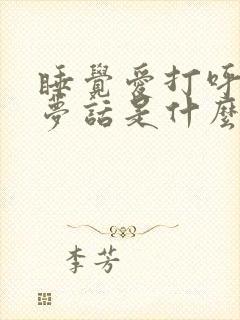 睡覺愛打呼
夢話是什麼
李芳